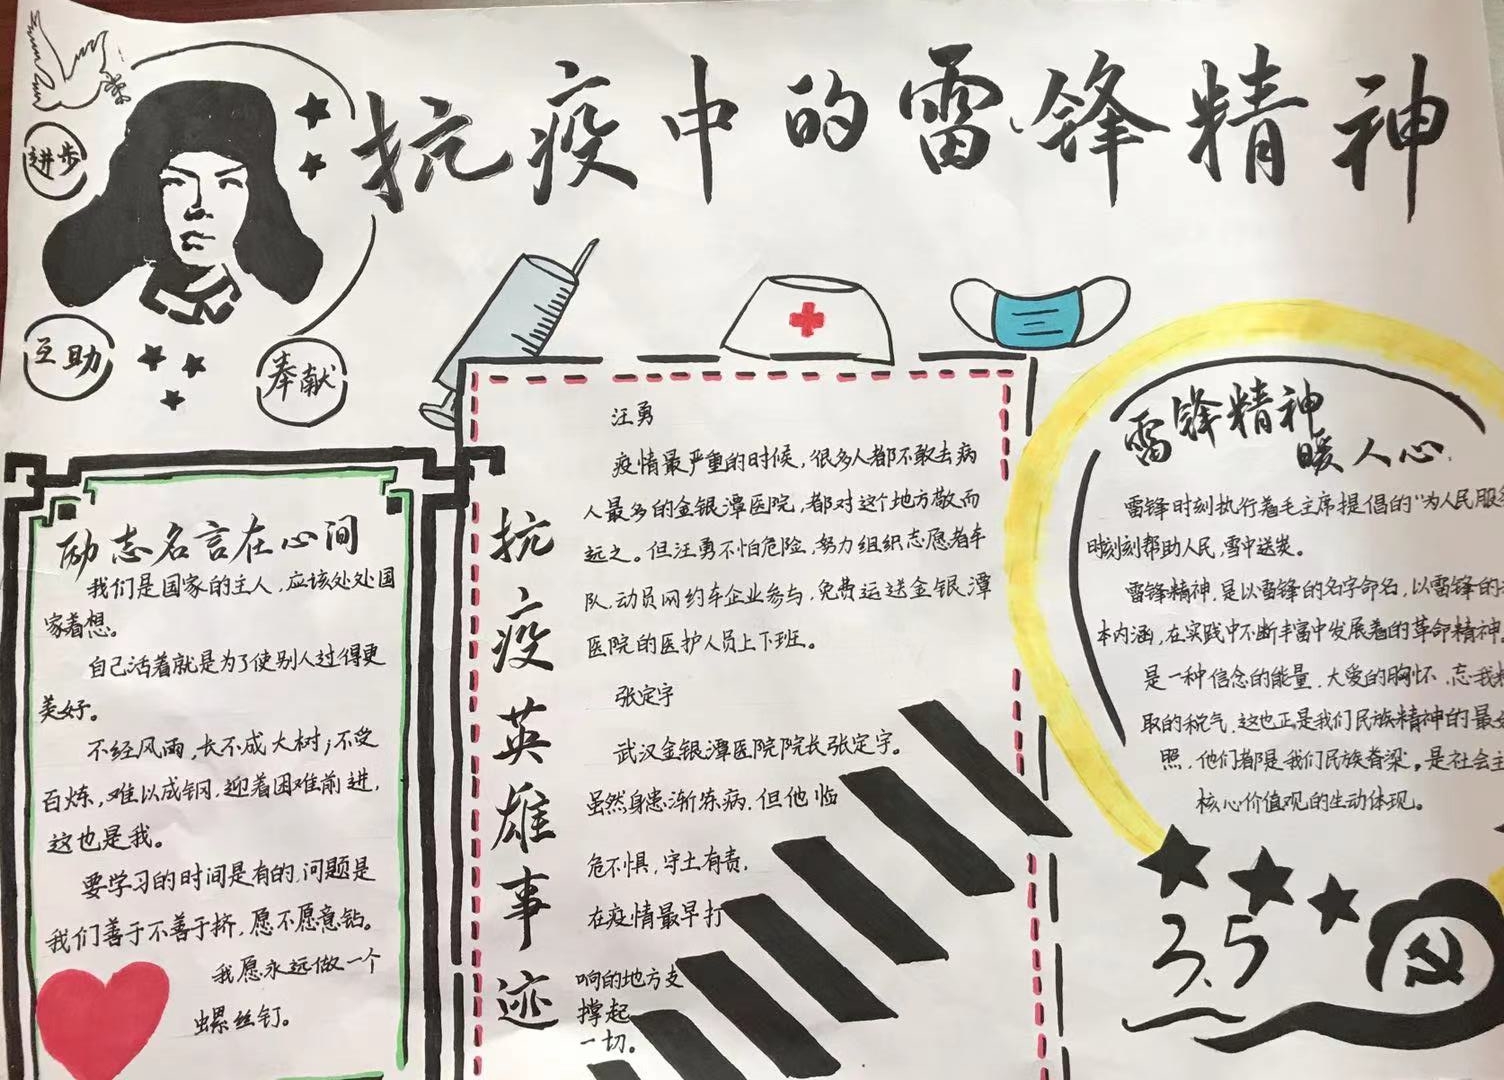 抗疫中的雷锋精神
进步
互助
奉献
励志名言在心间
我们是国家的主人,应该处处国
家着想。
自己活着就是为了使别人过得更
美好。
不经风雨,长不成大树;不受
百炼,难以成钢,迎着困难前进,
这也是我。
要学习的时间是有的,问题是
我们善于不善于挤,愿不愿意钻。
我愿永远做一个
螺丝钉。
抗疫英雄事迹
汪勇
疫情最严重的时候,很多人都不敢去病
人最多的金银潭医院,都对这个地方敬而
远之。但汪勇不怕危险,努力组织志愿者车
队,动员网约车企业参与,免费运送金银潭
医院的医护人员上下班。
张定宇
武汉金银潭医院院长张定宇。
虽然身患渐冻病,但他临
危不惧,守土有责,
在疫情最早打
响的地方支
撑起
一切。
雷锋精神
暖人心
雷锋时刻执行着毛主席提倡的“为人民服务
时刻刻帮助人民,雪中送炭。
雷锋精神,是以雷锋的名字命名,以雷锋的
本内涵,在实践中不断丰富中发展着的革命精神。
是一种信念的能量、大爱的胸怀、忘我
取的锐气,这也正是我们民族精神的最
照,他们都是我们民族脊梁。是社会主
核心价值观的生动体现。
3.5